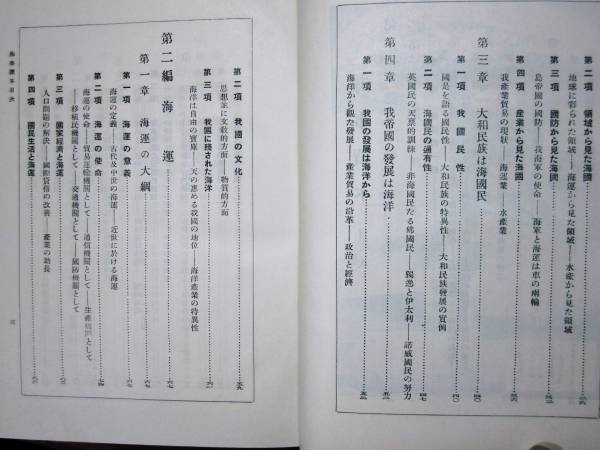 第二項 領域から見た海國……………三六
地球に彩られた領域──海運から見た領域──水産から見た領域
第三項 國防から見た海國……………三三
島帝國の國防──我海軍の使命──海軍と海運は車の兩輪
第四項 産業から見た海國……………三六
我産業貿易の現狀──海運業──水産業
第三章 大和民族は海國民……………四〇
第一項 我國民性……………四〇
國是を語る國民性──大和民族の特異性──大和民族發展の實例
第二項 海國民の通有性……………四七
英國民の天惠的訓練──非海國民たる佛國民──獨逸と伊太利──諾威國民の努力
第四章 我帝國の發展は海洋……………五三
第一項 我國の發展は海洋から……………五三
海洋から觀た發展──産業貿易の沿革──政治と經濟
第二項 我國の文化……………五九
思想竝に文教的方面──物質的方面
第三項 我國に殘された海洋……………六一
海洋は自由の寶庫──天の惠める我國の地位──海洋産業の特異性
第二編 海運……………六七
第一章 海運の大綱……………六七
第一項 海運の意義……………六七
海運の定義──古代及中世の海運──近世に於ける海運
第二項 海運の使命……………七四
海運の使命──貿易運輸機關として──通信機關として──生産機關として
──移植民機關として──交通機關として──國防機關として
第三項 國家經濟と海運
人口問題の解決──國際貸借の改善──産業の助長
第四項 國民生活と海運
海事讀本目次
三